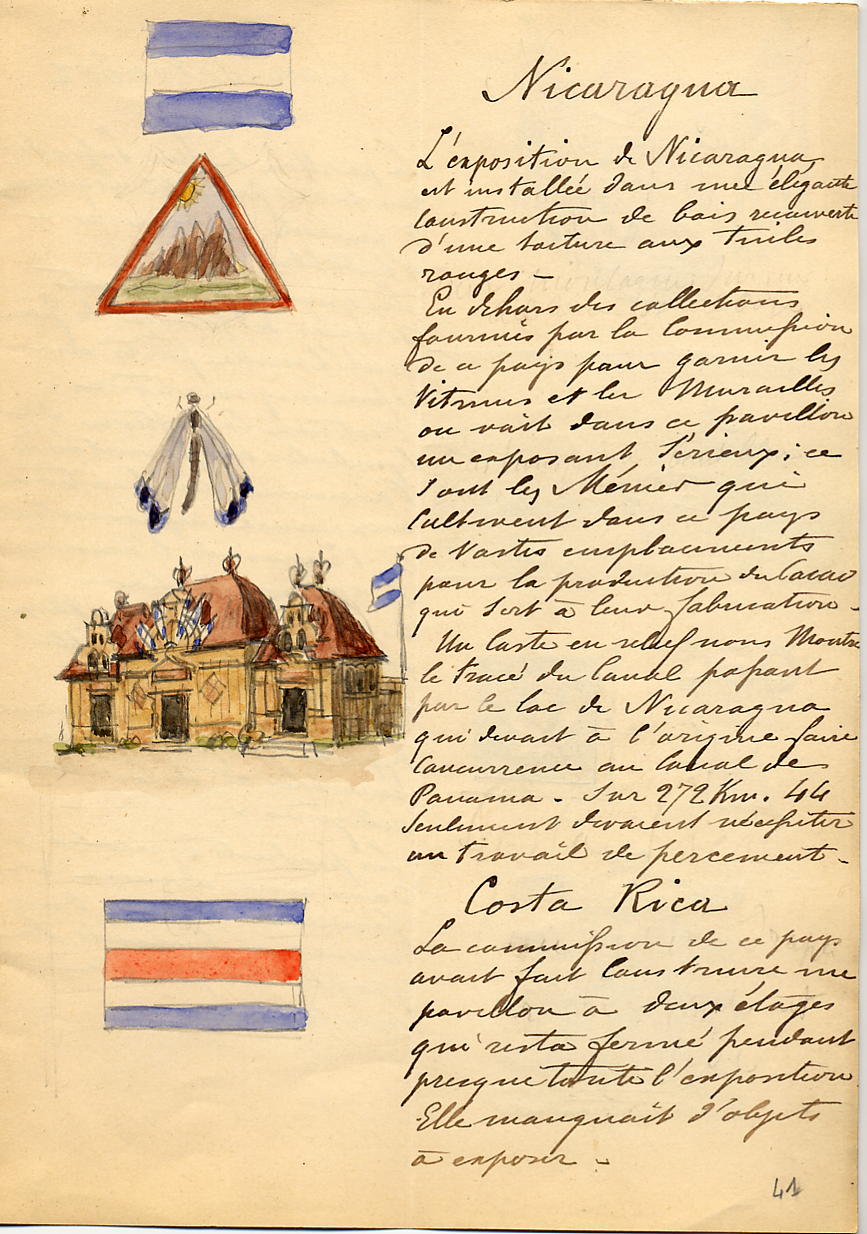 Nicaragua
L'exposition de Nicaragua
est installée dans une élégante
construction de bois recouverte
d'une toiture aux tuiles
rouges -
En dehors des collections
fournies par la Commission
de ce pays pour garnir les
Vitrines et les Murailles
on voit dans ce pavillon
un exposant Sérieux; ce
sont les Ménier qui
Cultivent dans ce pays
de Vastes emplacements
pour la production du Cacao
qui sert à leur fabrication -
Un Carte en relief nous Montre
le tracé du Canal passant
par le lac de Nicaragua
qui devait à l'origine faire
Concurrence au Canal de
Panama - Sur 272 Km. 44
Seulement devaient nécessiter
un travail de percement -
Costa Rica
La commission de ce pays
avait fait Construire une
pavillon à deux étages
qui resta fermé pendant
presque toute l'exposition.
Elle manquait d'objets
à exposer -
41